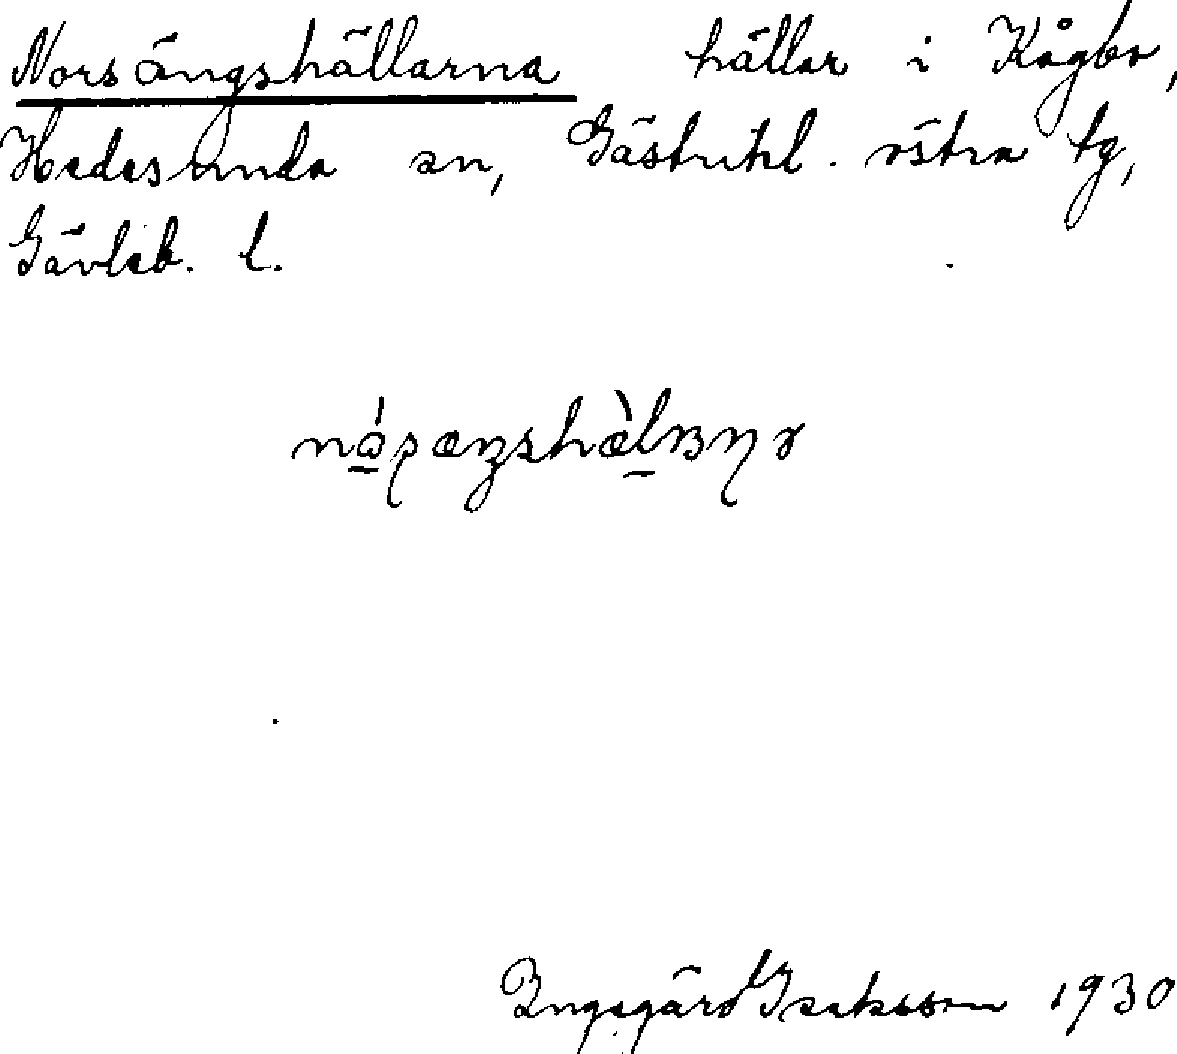 Norsängshällarna hällar i Kågbo,
Hedesunda sn, Gästrikl. östra tg,
Gävleb. l.
Ingegärd Isaksson 1930